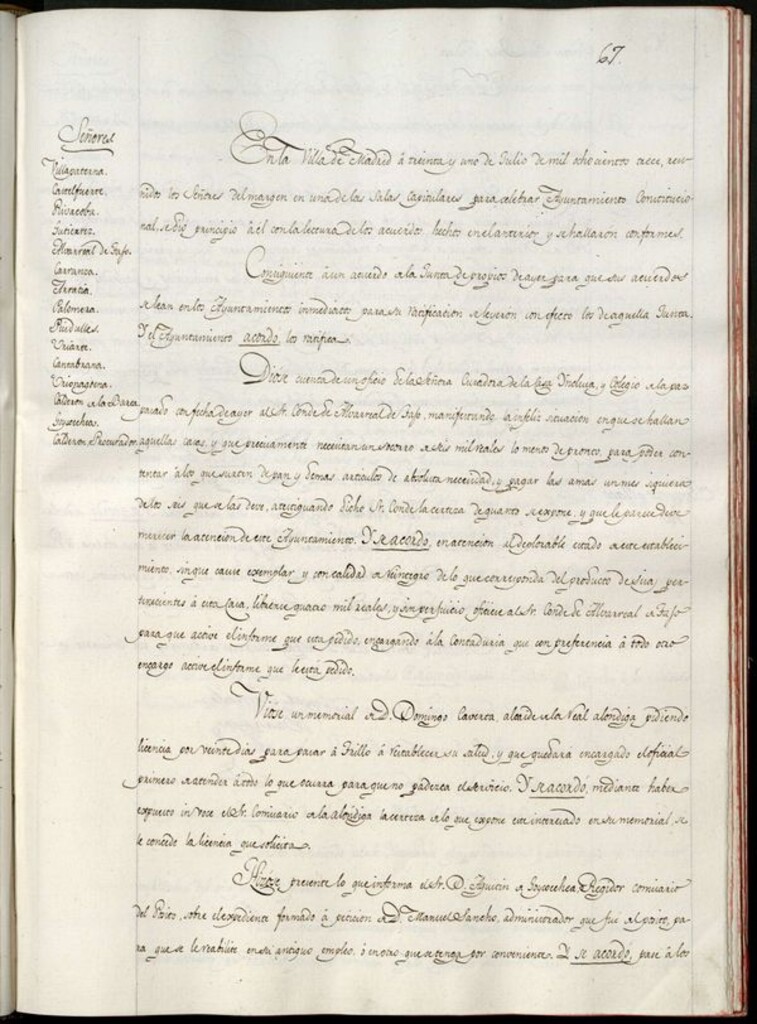 67.
Señores
Villapaterna.
Castelfuerte.
Rivacoba.
Gutierrez.
Alvarreal de Tajo.
Carranza.
Arratia.
Palomera.
Ruidalles.
Uriarte.
Cantabrana.
Uriopagoena.
Calderon de la Barca
Goycoechea.
Calderon Procurador.
En la Villa de Madrid á treinta y uno de Julio de mil ochocientos trece, reu-
nidos los Señores del margen en una de las Salas Capitulares para celebrar Ayuntamiento Constitucio-
nal, se dió principio á él con la lectura de los acuerdos hechos en el anterior, y se hallaron conformes.
Consiguiente á un acuerdo de la Junta de propios de ayer para que sus acuerdos
se lean en los Ayuntamientos inmediatos para su ratificacion se leyeron con efecto los de aquella Junta.
Y el Ayuntamiento acordó, los ratifica.
Diose cuenta de un oficio de la Señora Curadora de la Casa Ynclusa, y Colegio de la paz
pasado con fecha de ayer al Sr. Conde de Alvarreal de Tajo, manifestando la infeliz situacion en que se hallan
aquellas casas, y que precisamente necesitan un socorro de seis mil reales lo menos de pronto, para poder con-
tentar a los que surten de pan y demas articulos de absoluta necesidad, y pagar las amas un mes siquiera
de los seis que se las deve, atestiguando dicho Sr. Conde la certeza de quanto se expone, y que le parece deve
merecer la atencion de este Ayuntamiento. Y se acordó, en atencion al deplorable estado de este estableci-
miento, sin que cause exemplar y con calidad de reintegro de lo que corresponda del producto de sisas per-
tenecientes á esta Casa, librense quatro mil reales, y sin perjuicio, oficiese al Sr. Conde de Alvarreal de Tajo
para que active el informe que esta pedido, encargando á la Contaduria que con preferencia á todo otro
encargo active el informe que le está pedido.
Viose un memorial de D. Domingo Caverta, alcaide de la Real alondiga pidiendo
licencia por veinte dias para pasar á Trillo á restablecer su salud, y que quedará encargado el oficial
primero de atender á todo lo que ocurra para que no padezca el servicio. Y se acordó, mediante haber
expuesto in voce el Sr. Comisario de la alondiga la certeza de lo que expone este interesado en su memorial, se
le concede la licencia que solicita.
Hizose presente lo que informa el Sr. D. Agustin de Goycoechea, Regidor comisario
del Posito, sobre el expediente formado á peticion de D. Manuel Sancho, administrador que fue del posito, pa-
ra que se le reabilite en su antiguo empleo, ó en otro que se tenga por conveniente. Y se acordó, pase á los